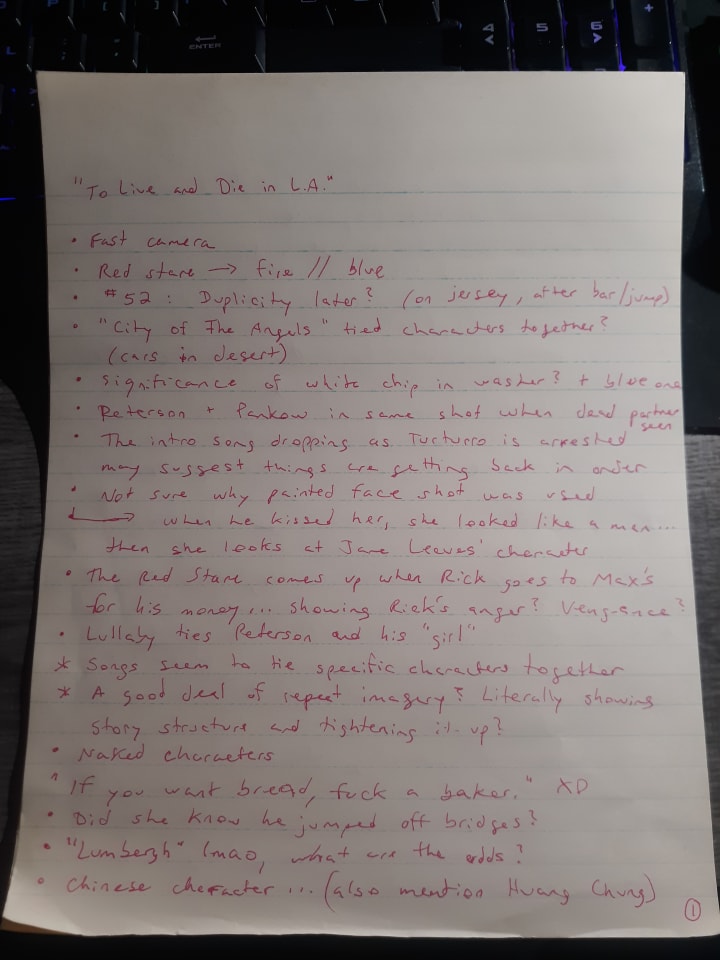 ENTER
4
5
6
+
"To Live and Die in L.A."
• Fast camera
• Red stare → fire // blue
• #52: Duplicity later? (on jersey, after bar/jump)
• "City of The Angels" tied characters together?
(cars in desert)
• Significance of white chip in washer? + blue one
• Peterson + Pankow in same shot when dead partner seen
• The intro song dropping as Turturro is arrested
may suggest things are getting back in order
• Not sure why painted face shot was used
→ when he kissed her, she looked like a man...
then she looks at Jane Leeves' character
• The Red Stare comes up when Rick goes to Max's
for his money... showing Rick's anger? Vengeance?
• Lullaby ties Peterson and his "girl"
* Songs seem to tie specific characters together
* A good deal of repeat imagery? Literally showing
story structure and tightening it up?
• Naked characters
"If you want bread, fuck a baker." XD
• Did she know he jumped off bridges?
• "Lumbergh" lmao, what are the odds?
• Chinese character... (also mention Huang Chung)
1